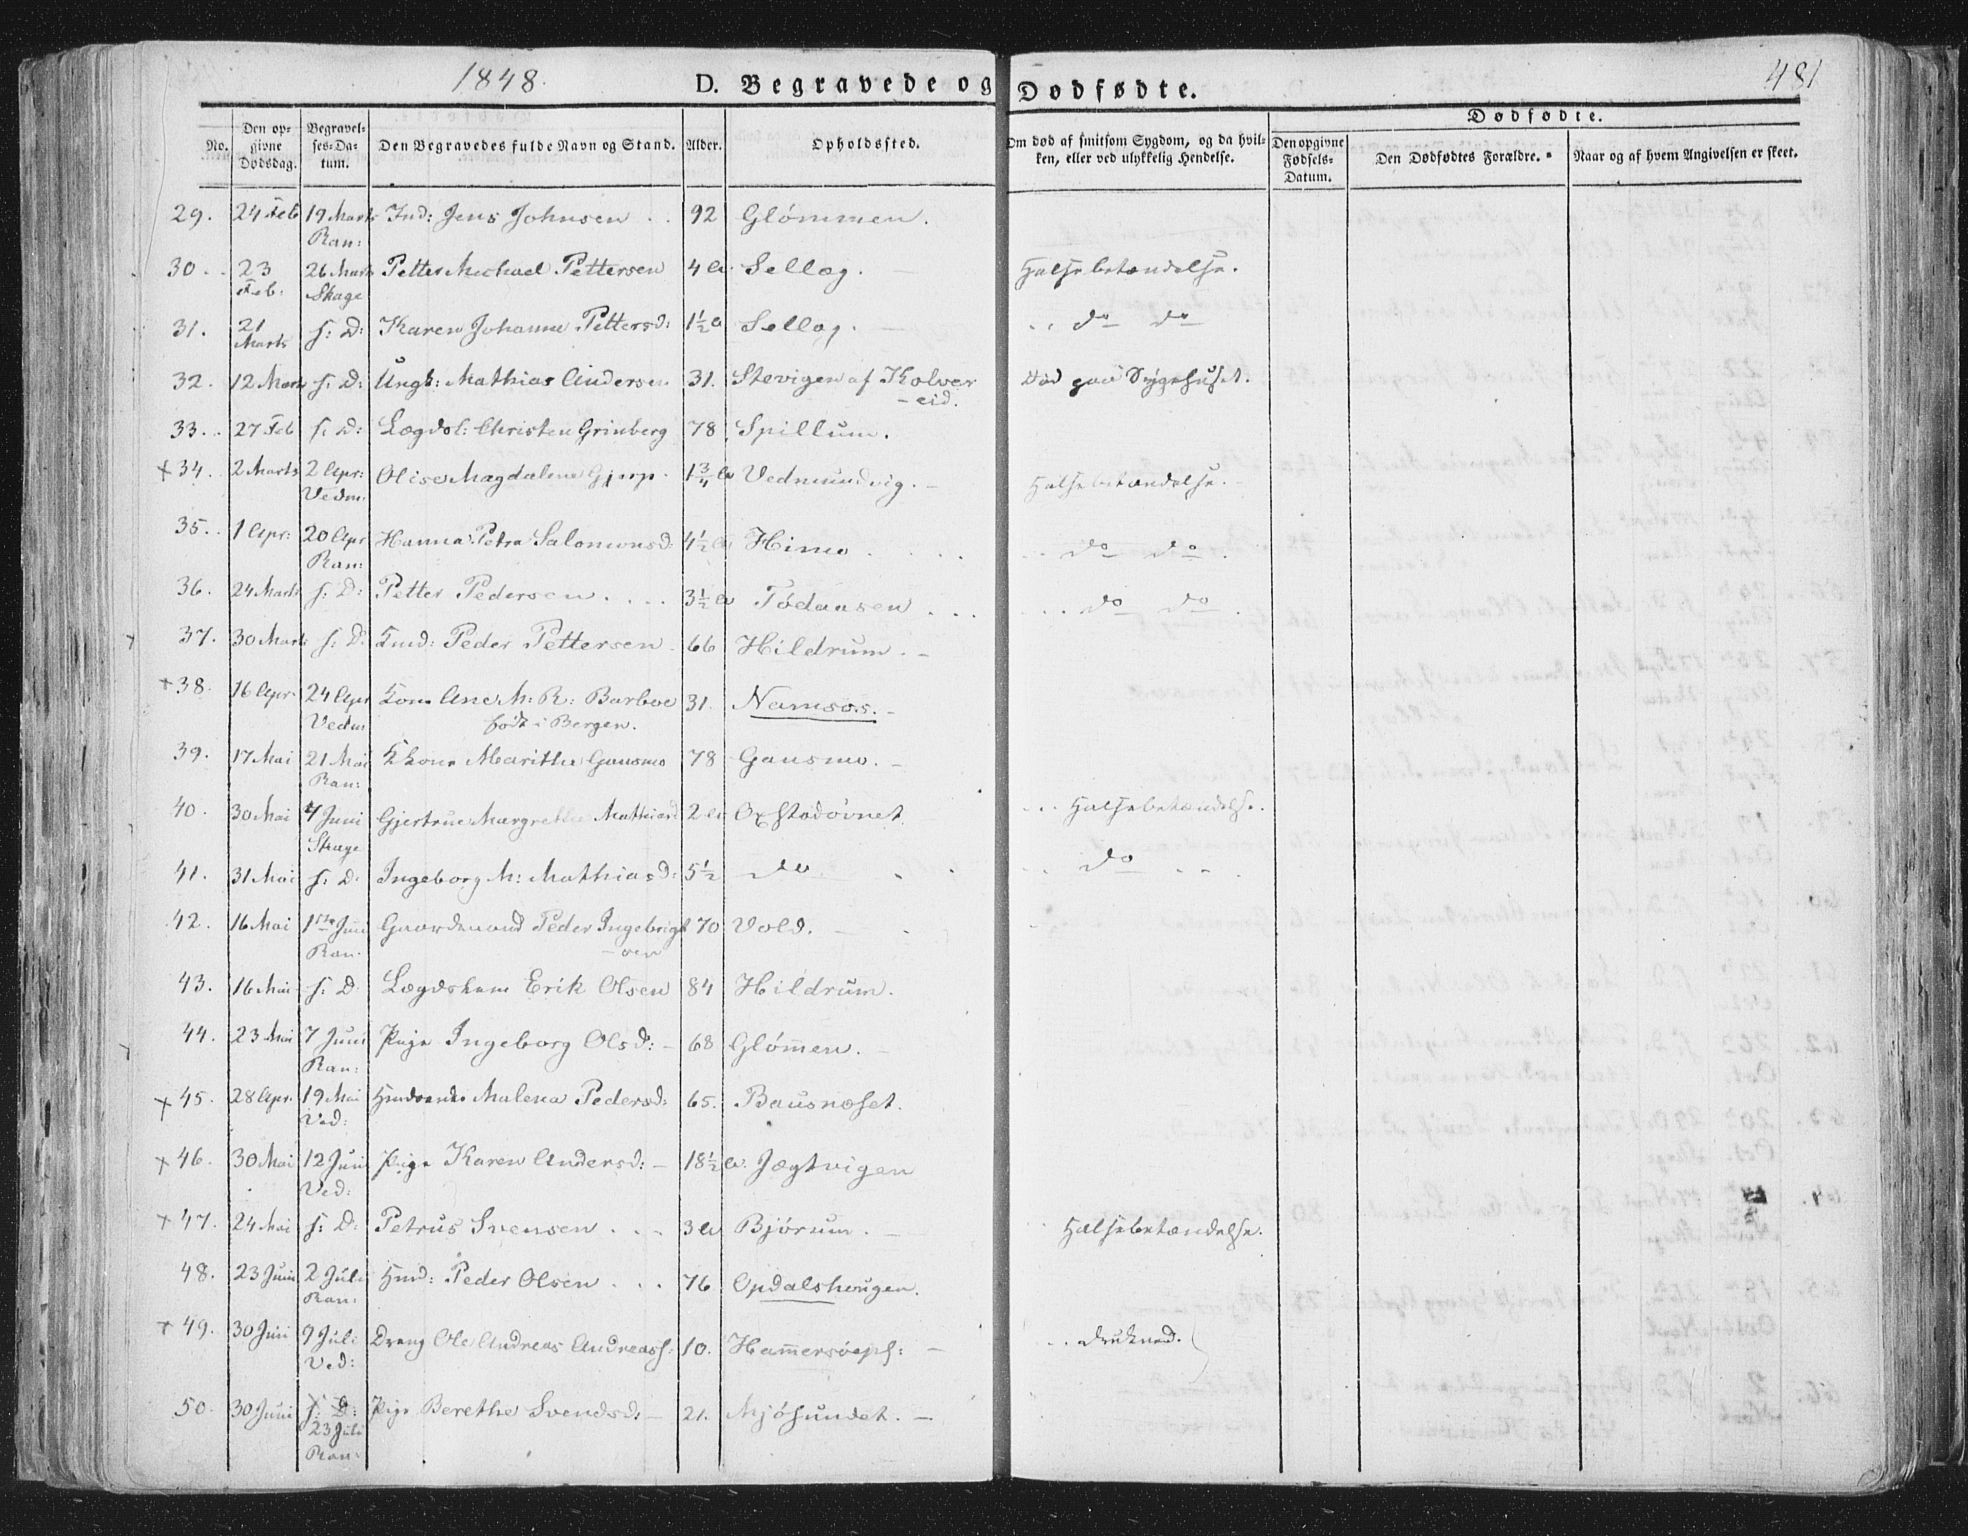 1848.
D. Begravede og Dødfødte.
481
No.
Den opgivne Dødsdag.
Begravelses-Datum.
Den Begravedes fulde Navn og Stand.
Alder.
Opholdssted.
Om død af smitsom Sygdom, og da hvilken, eller ved ulykkelig Hendelse.
Dødfødte.
Den opgivne Fødsels-Datum.
Den Dødfødtes Forældre.
Naar og af hvem Angivelsen er skeet.
29. 24 Feb 19 Marts Ran: Ind: Jens Johnsen 92 Glömmen.
30. 23 Feb: 26 Marts Skage Petter Michael Pettersen 4 a. Sellæg. Halsebetændelse.
31. 21 Marts s: D: Karen Johanna Pettersd: 1½ a Sellæg. do do
32. 12 Marts s: D: Ungk: Mathias Andersen 31. Stevigen af Kolver-eid. Död paa Sygehuset.
33. 27 Feb s: D: Lægdsl: Christen Grinberg 78 Spillum.
+ 34. 2 Marts 2 Apr: Vedm: Olise Magdalena 1¾ a Vedmundvig. Halsebetændelse.
35. 1 Apr: 20 Apr Ran: Hanna Petra Salomonsd: 4½ a Himo do do.
36. 24 Marts s: D: Petter Pedersen 3½ a Tödaasen do do.
37. 30 Marts s: D: Peder Pettersen 66 Hildrum.
+ 38. 16 Apr 24 Apr Vedm Kone Ane M: R: Barboe 31. Namsos.
født i Bergen.
39. 17 Mai 21 Mai Ran: Maritha Gausmo 78 Gausmo.
40. 30 Mai 4 Juni Skage Gjertrue Margrethe Mathiasd 2 a Oxstadøvnet Halsebetændelse.
41. 31 Mai s: D. Ingeborg M: Mathiasd: 5½ do do
42. 16 Mai 1ste Juni Ran. Gaardmand Peder Ingebrigt-sen 70 Vold.
43. 16 Mai s: D Lægdslem Erik Olsen 84 Hildrum.
44. 23 Mai 7 Juni Ran: Pige Ingeborg Olsd: 68 Glömen.
+ 45. 28 Apr. 19 Mai Ved: Malena Pedersd: 65. Bausnæset.
+ 46. 30 Mai 12 Juni Ved: Pige Karen Andersd: 18½ a. Jægtvigen
+ 47. 24 Mai s: D: Petrus Svensen 3 a Bjórum. Halsebetændelse.
48. 23 Juni 2 Juli Ran: Hmd: Peder Olsen 76 Opdalshougen.
+ 49. 30 Juni 9 Juli Ved: Dreng Ole Andreas Andreass: 10. druknad.
50. 30 Juni s: D: 23 Juli Ran: Pige Berethe Svendsd: 21. Mjösundet.